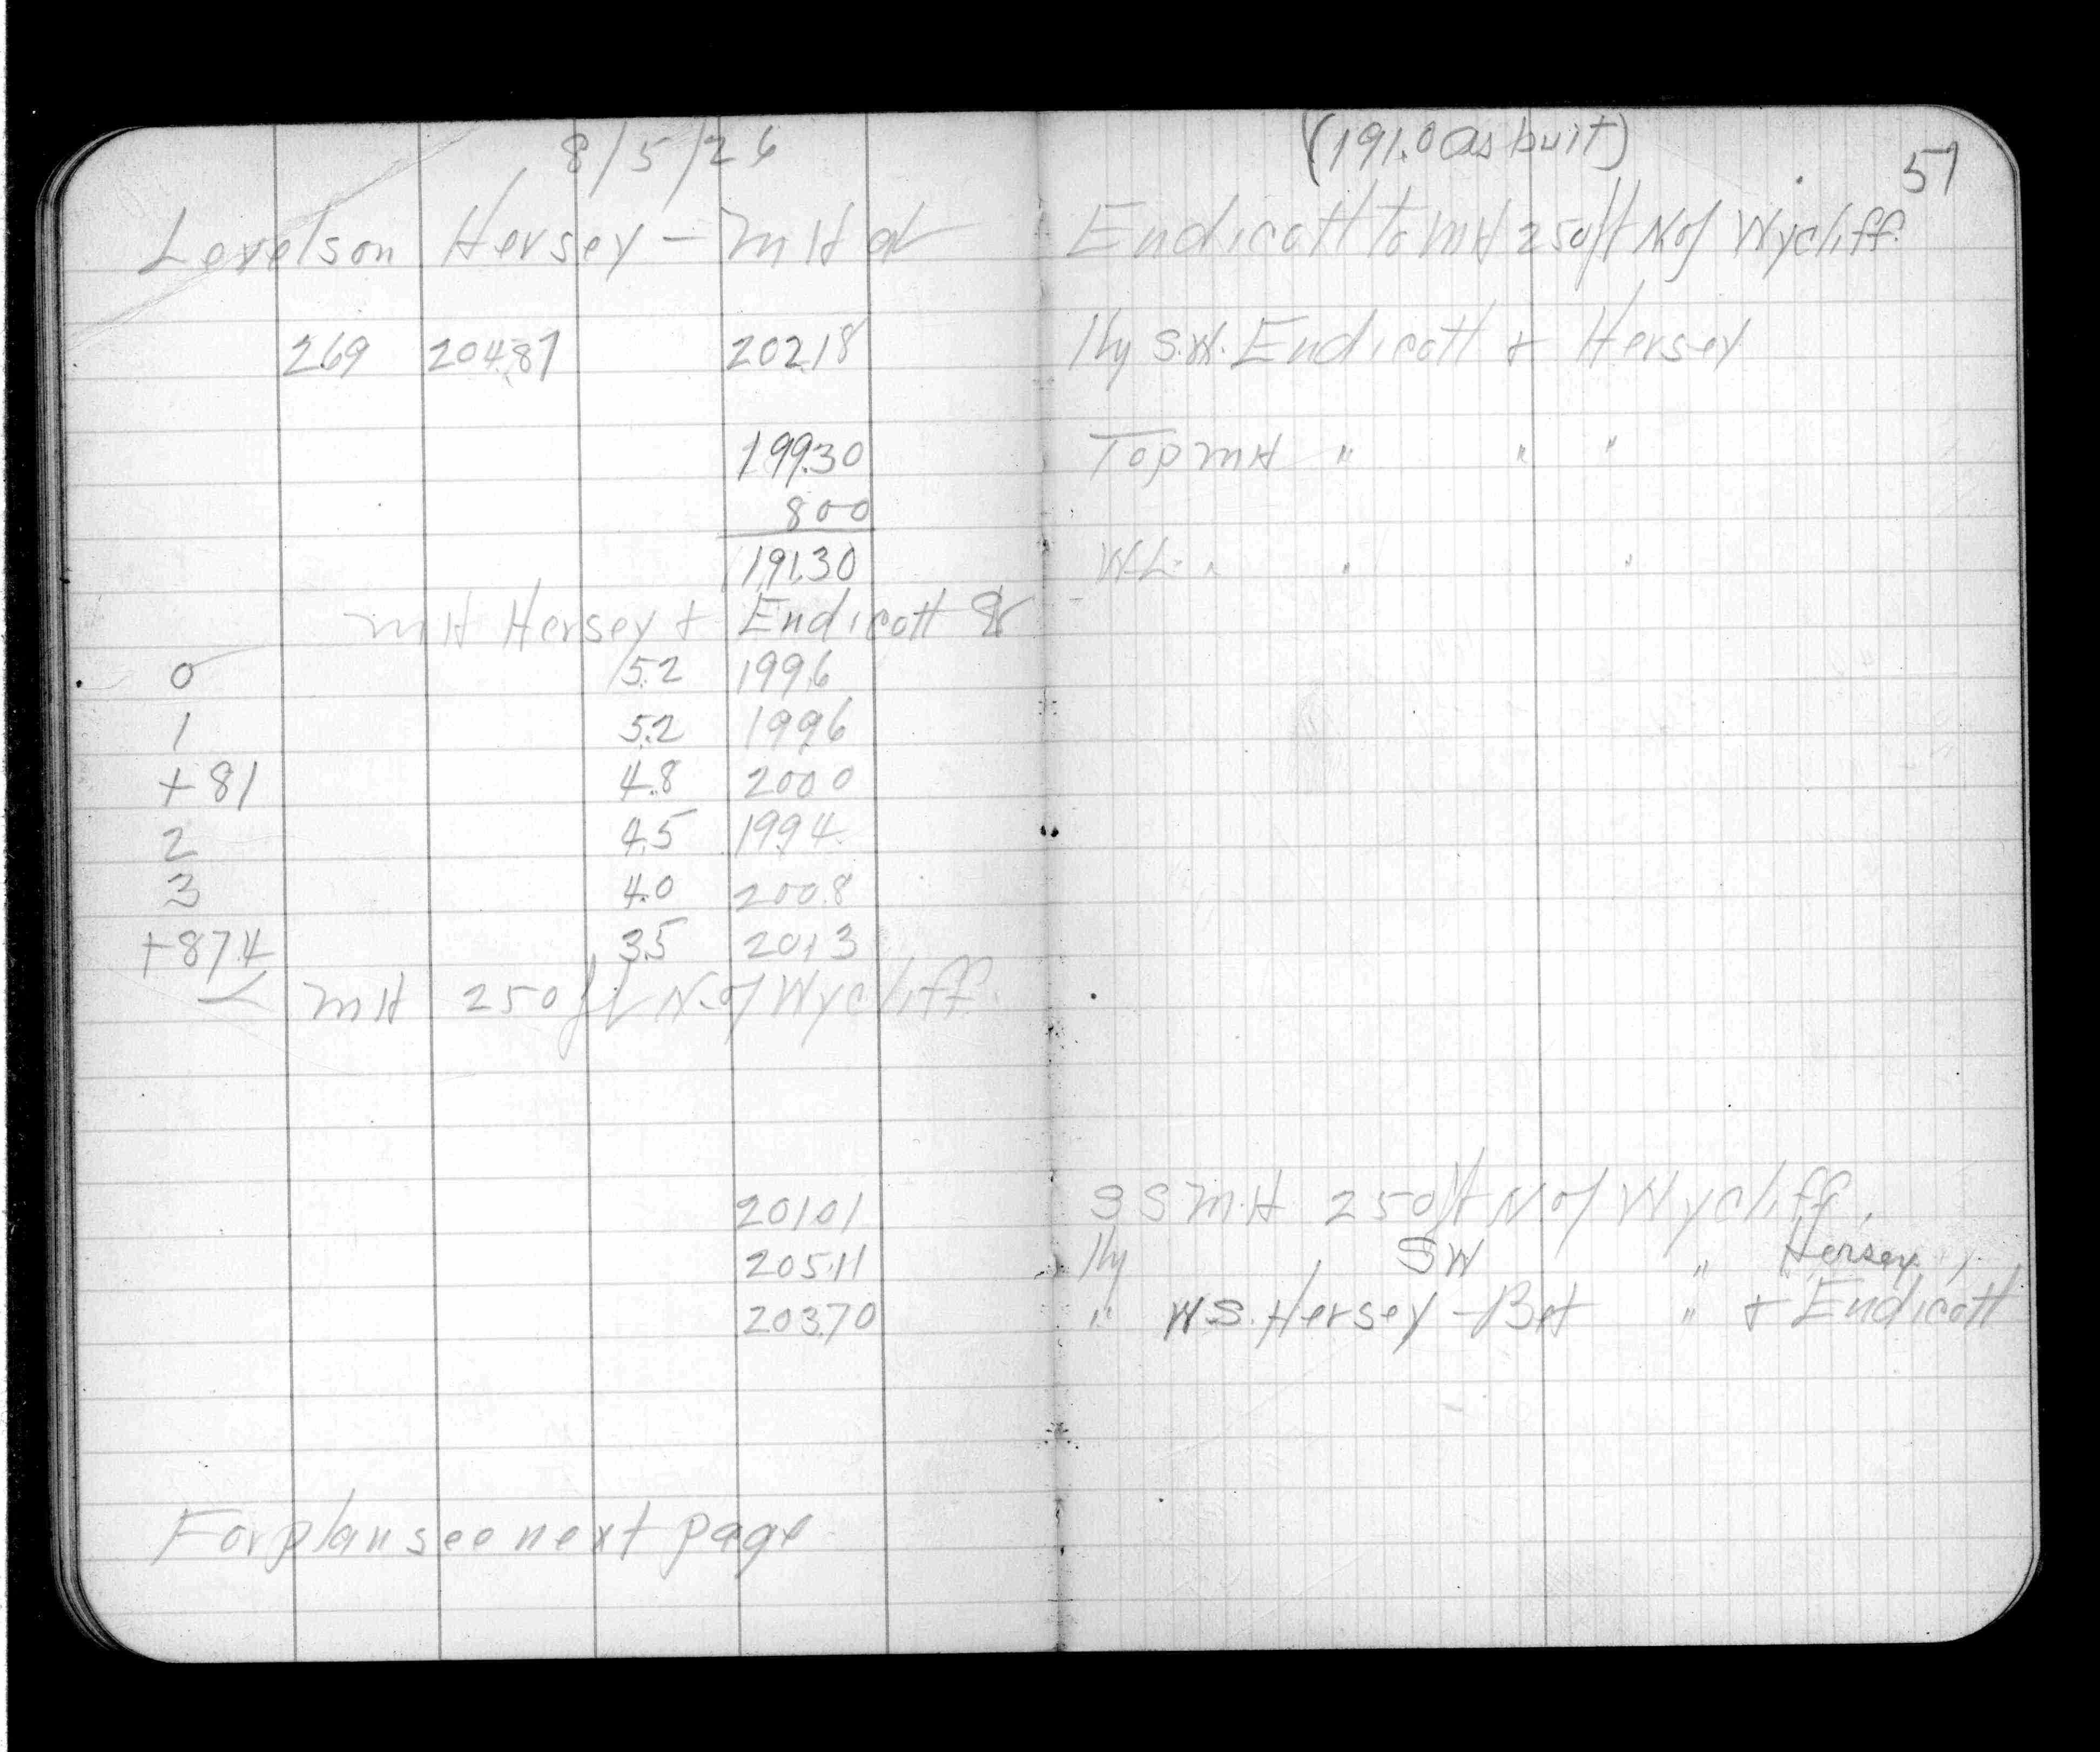 8/5/26
(191.0 as built)
57
Levels on Hersey - MH at Endicott to MH 250ft N of Wycliff.
2.69 204.87 202.18 Hy S.W. Endicott & Hersey
199.30 Top MH " " "
8.00
191.30 W.L. " " "
MH Hersey & Endicott St
0 5.2 199.6
1 5.2 199.6
+81 4.8 200.0
2 4.5 199.4
3 4.0 200.8
+87.4 3.5 201.3
MH 250ft N. of Wycliff.
201.01 SS MH 250ft N of Wycliff,
205.11 Hy SW " Hersey
203.70 " W.S. Hersey - Bet " & Endicott
For plan see next page